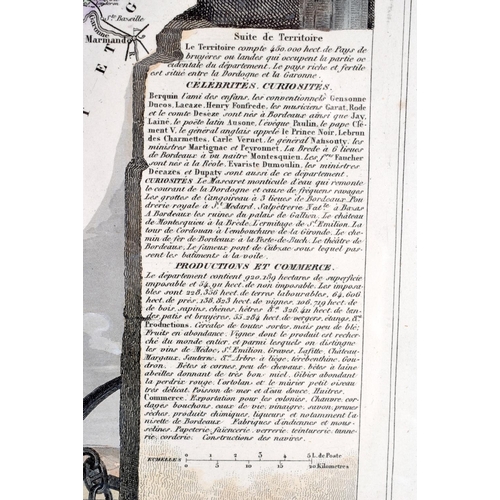 Ste. Bazeille
Marmande
E T G
Suite de Territoire
Le Territoire compte 450,000 hect. de Pays de
bruyères ou landes qui occupent la partie oc
cidentale du département. Le pays riche et fertile
est situé entre la Dordogne et la Garonne.
CÉLÉBRITÉS. CURIOSITÉS.
Berquin l'ami des enfans, les conventionnels Gensonne
Ducos, Lacaze, Henry Fonfrede, les musiciens Garat, Rode
et le comte Deseze sont nés à Bordeaux ainsi que Jay,
Lainé, le poëte latin Ausone, l'évêque Paulin, le pape Clé
ment V, le général anglais appelé le Prince Noir, Lebrun
des Charmettes, Carle Vernet, le général Nansouty, les
ministres Martignac et Peyronnet. La Brede à 6 lieues
de Bordeaux à vu naitre Montesquieu. Les fres Faucher
sont nés à la Réole. Evariste Dumoulin, les ministres
Décazes et Dupaty sont aussi de ce département.
CURIOSITÉS Le Mascaret monticule d'eau qui remonte
le courant de la Dordogne et cause de fréquens ravages
Les grottes de Cangoireau à 3 lieues de Bordeaux. Pou
drerie royale à St. Médard. Salpetrerie Nat.le à Bazas
A Bordeaux les ruines du palais de Gallien. Le château
de Montesquieu à la Brede. L'ermitage de St. Emilion. La
tour de Cordouan à l'embouchure de la Gironde. Le che-
min de fer de Bordeaux à la Teste-de-Buch. Le théâtre de
Bordeaux. Le fameux pont de Cubzac sous lequel pas-
sent les batiments à la voile.
PRODUCTIONS ET COMMERCE.
Le département contient 920,189 hectares de superficie
imposable et 54,911 hect. de non imposables. Les impo-
sables sont 228,356 hect. de terres labourables, 64,606
hect. de prés, 138,823 hect. de vignes, 106,719 hect. de
de bois, sapins, chênes, hêtres &c. 326,411 hect. de lan-
des, patis et bruyères, 55,284 hect. de vergers, étangs, &c.
Productions. Céréales de toutes sortes, mais peu de blé;
Fruits en abondance. Vignes dont le produit est recher-
ché du monde entier, et parmi lesquels on distingue
les vins de Médoc, St. Emilion, Graves, Lafitte, Château-
Margaux, Sauterne, &c. Arbre à liége, térébenthine, Gou-
dron. Bêtes à cornes, peu de chevaux, bêtes à laine
abeilles donnant de très bon miel. Gibier abondant
la perdrix rouge, l'ortolan et le mûrier petit oiseau
très délicat. Poisson de mer et d'eau douce. Huitres.
Commerce. Exportation pour les colonies. Chanvre, cor-
dages, bouchons, eaux de vie, vinaigre, savon, prunes
sèches, produits chimiques, liqueurs et notamment l'a-
nisette de Bordeaux Fabriques d'indiennes et mous-
selines. Papeterie, faïencerie, verrerie, teinturerie, tanne-
rie, corderie. Constructions des navires.
ECHELLES
0 1 2 3 4 5 L. de Poste
0 5 10 15 20 Kilomètres